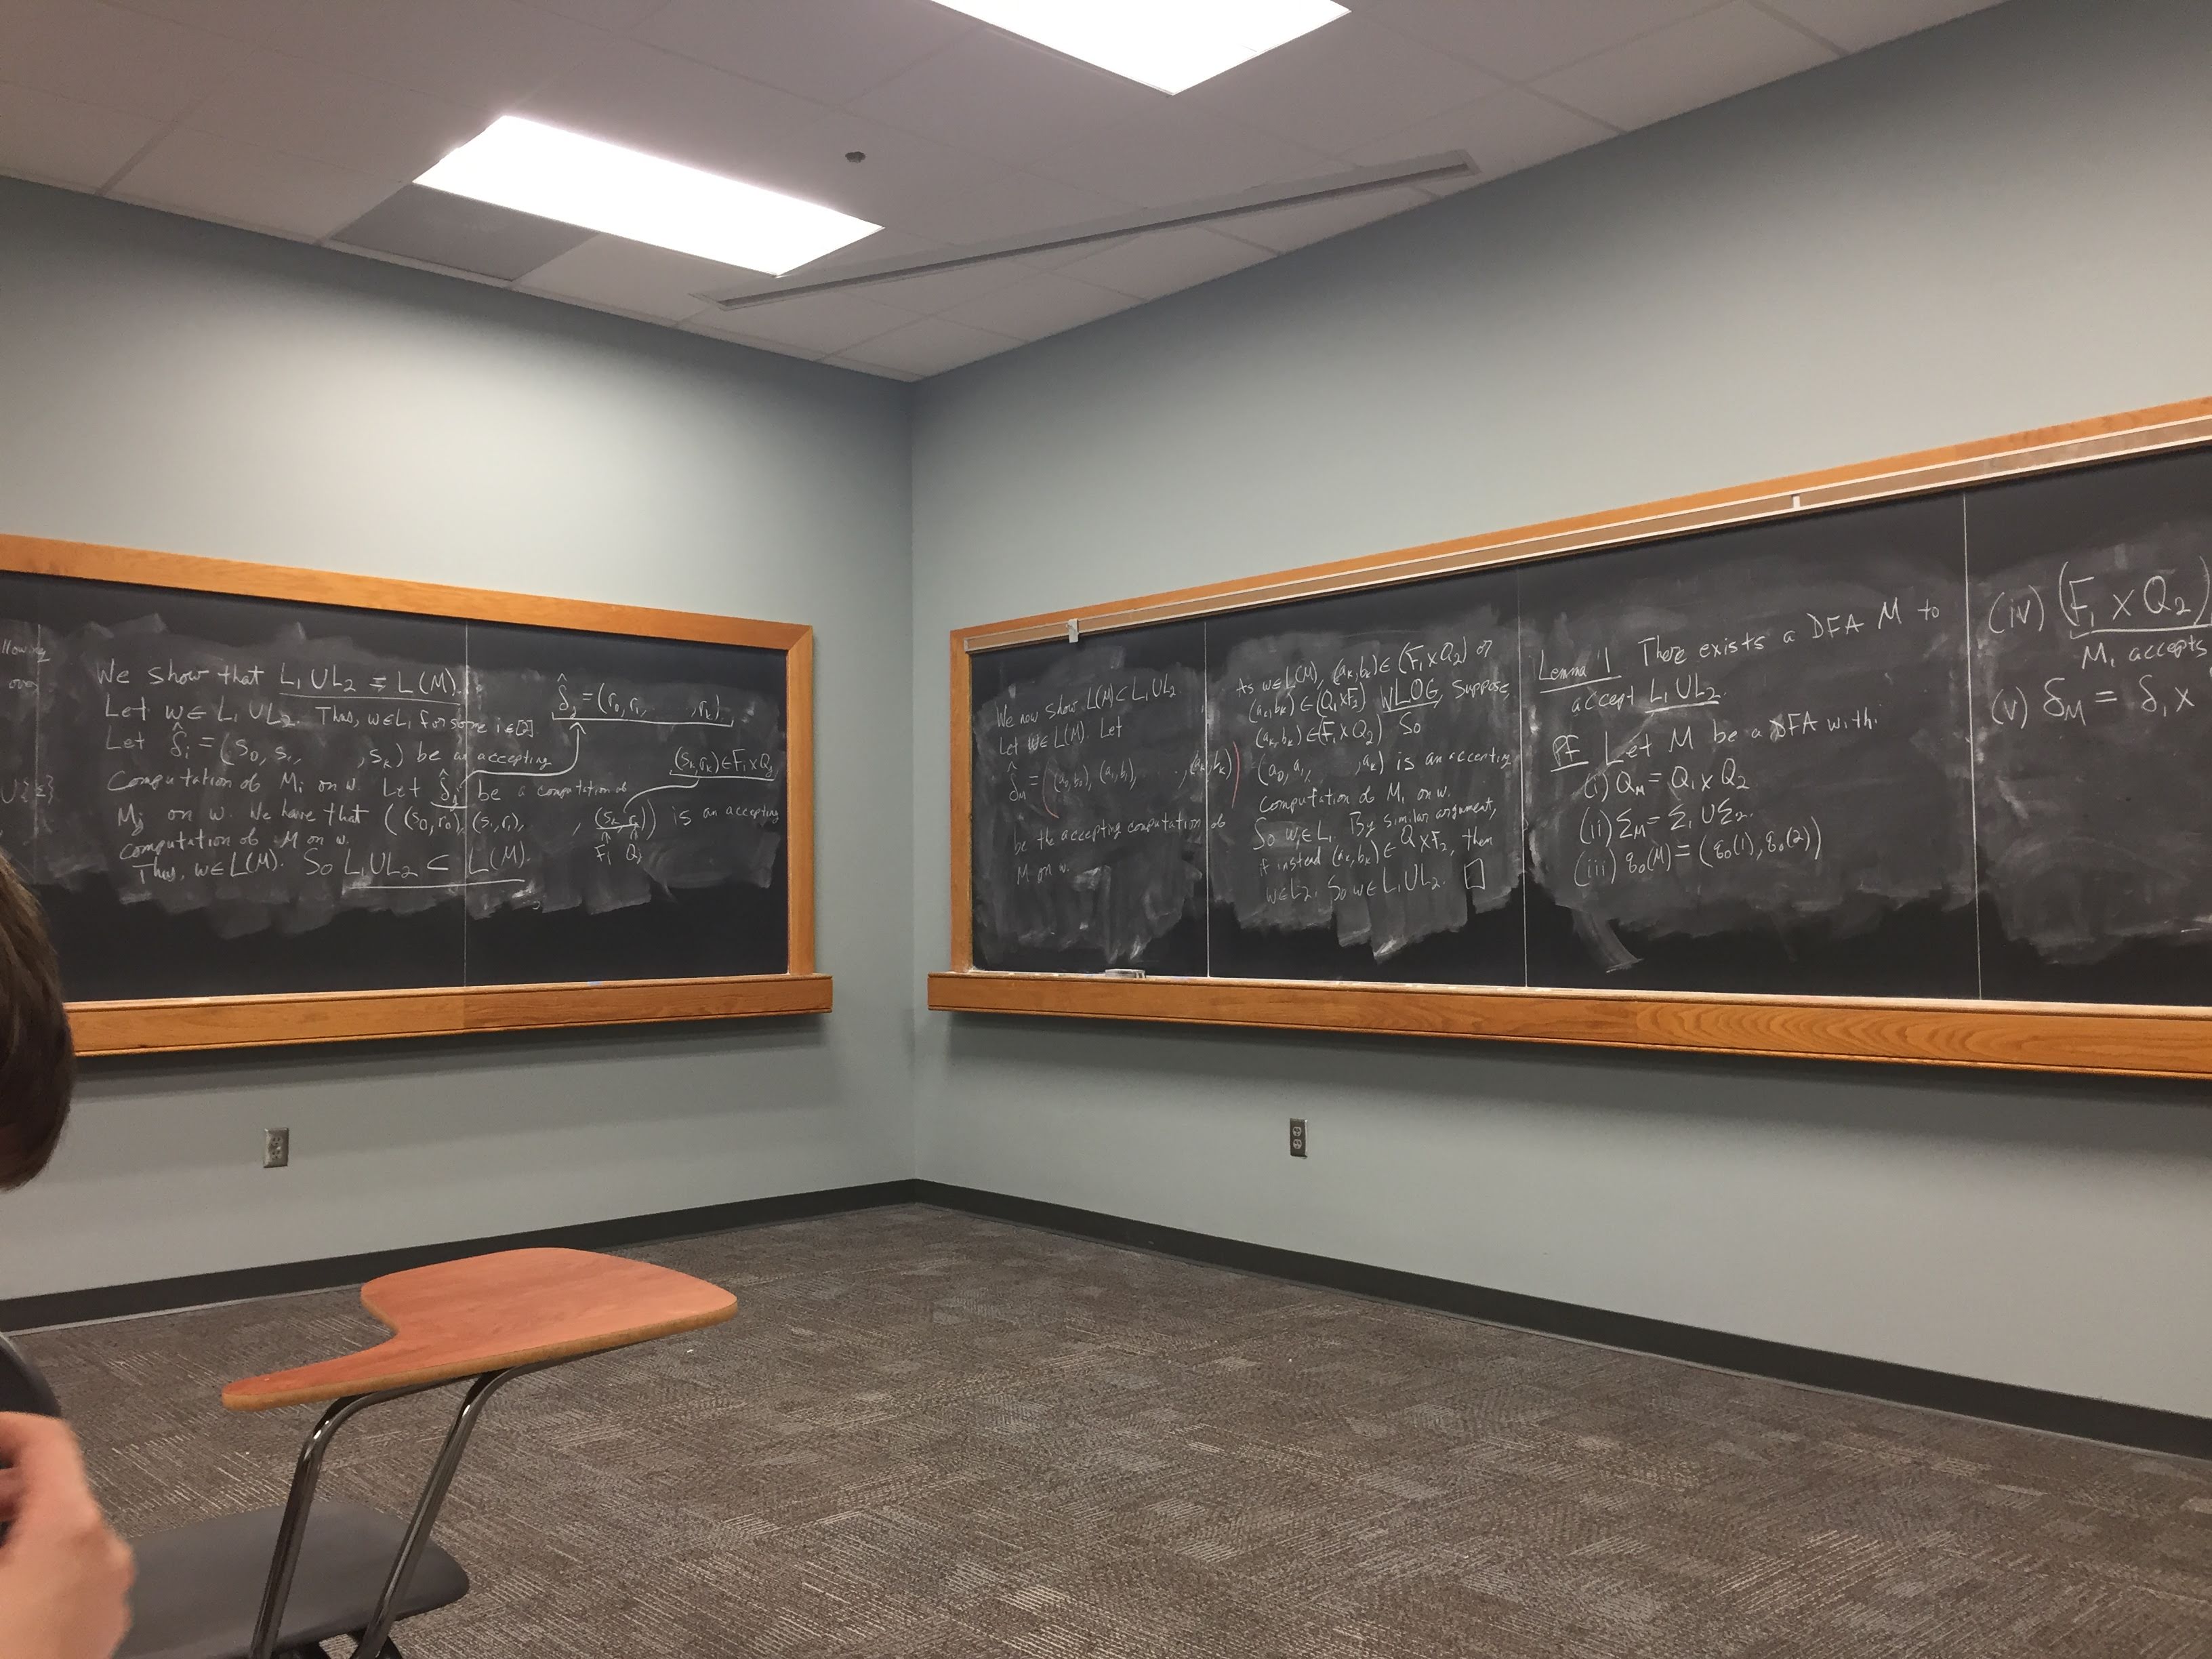 llowing
over
∪{ε}
We show that L₁∪L₂ = L(M).
Let w∈L₁∪L₂. Thus, w∈Lᵢ for some i∈[2]
Let δ̂ᵢ = (s₀, s₁, , sₖ) be an accepting
Computation of Mᵢ on w. Let δ̂ⱼ be a computation of
Mⱼ on w. We have that ((s₀,r₀), (s₁,r₁), , (sₖ,rₖ)) is an accepting
computation of M on w.
Thus, w∈L(M). So L₁∪L₂ ⊂ L(M).
δ̂ⱼ = (r₀, r₁, , rₖ)
(sₖ,rₖ)∈Fᵢ×Qⱼ
Fᵢ Qⱼ
We now show L(M)⊂L₁∪L₂
Let w∈L(M). Let
δ̂_M = ((a₀,b₀), (a₁,b₁), , (aₖ,bₖ))
be the accepting computation of
M on w.
As w∈L(M), (aₖ,bₖ)∈(F₁×Q₂) or
(aₖ,bₖ)∈(Q₁×F₂) WLOG, Suppose
(aₖ,bₖ)∈(F₁×Q₂) So
(a₀, a₁, , aₖ) is an accepting
Computation of M₁ on w.
So w∈L₁. By similar argument,
if instead (aₖ,bₖ)∈Q×F₂, then
w∈L₂. So w∈L₁∪L₂. □
Lemma 1 There exists a DFA M to
accept L₁∪L₂.
Pf Let M be a DFA with:
(i) Q_M = Q₁×Q₂
(ii) Σ_M = Σ₁∪Σ₂.
(iii) q₀(M) = (q₀(1), q₀(2))
(iv) (F₁×Q₂)
M₁ accepts
(v) δ_M = δ₁×